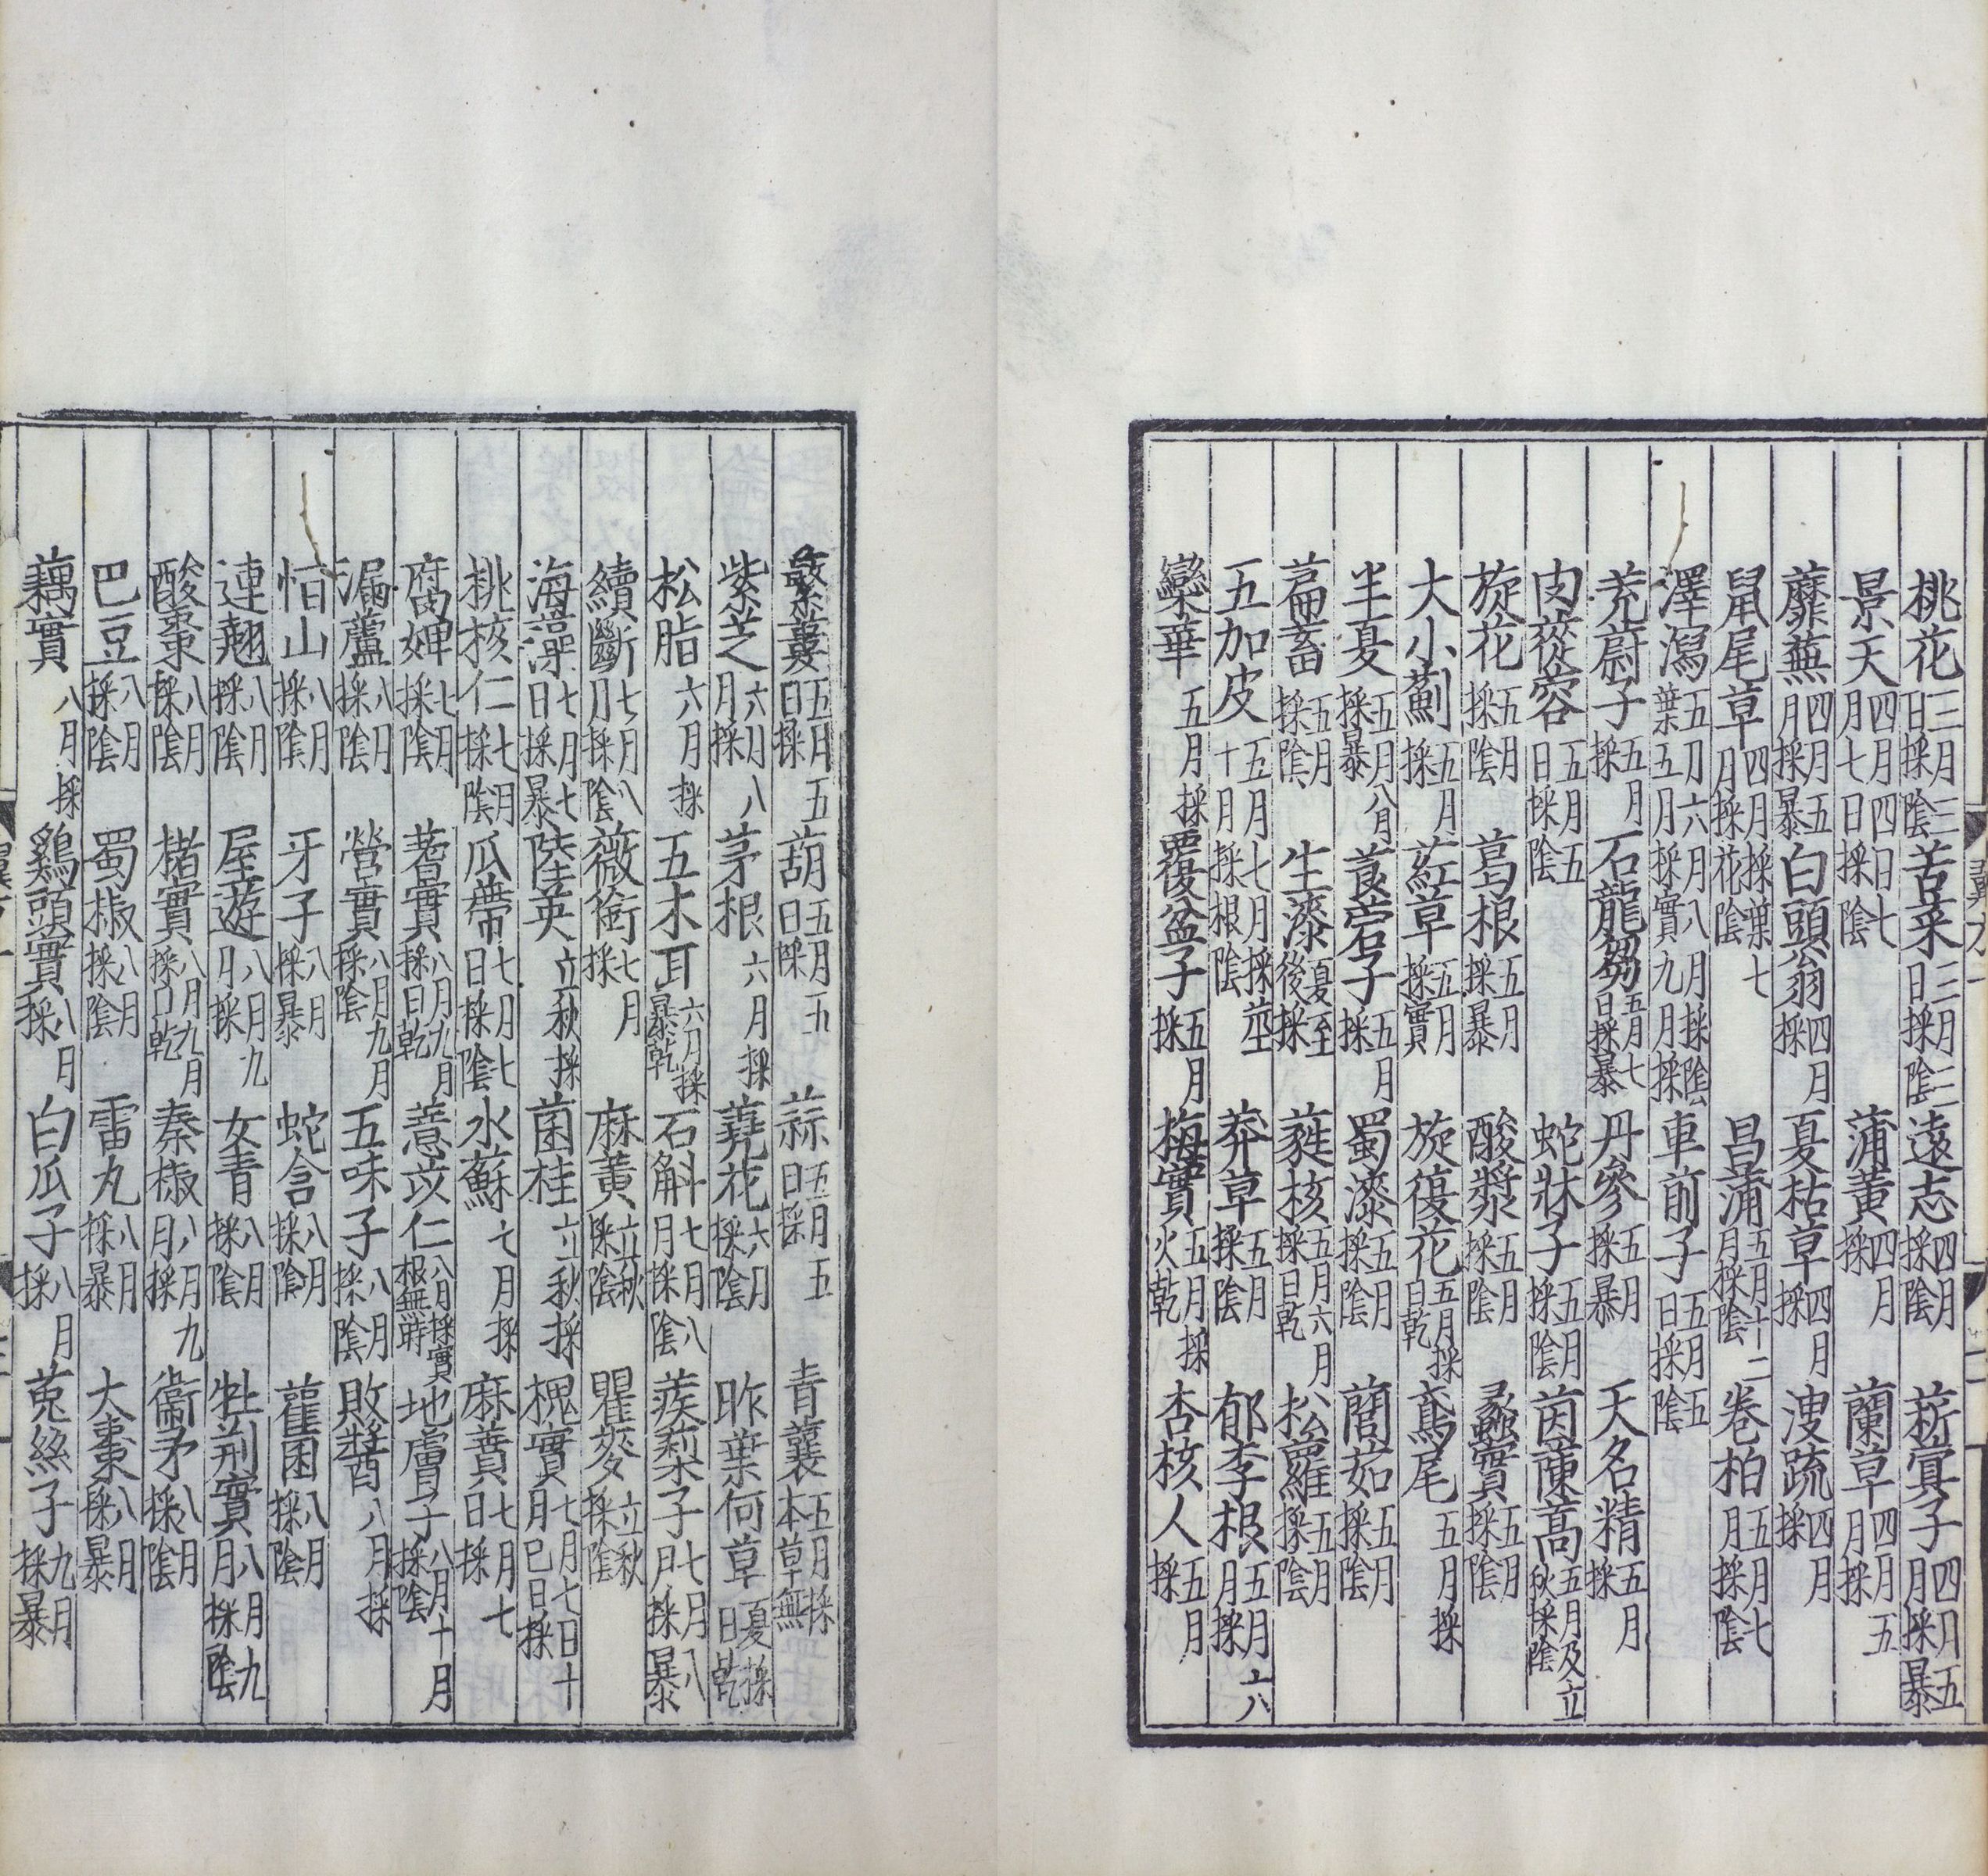 桃花三月三日採陰 苦菜三月三日採陰 遠志四月採陰 菥蓂子四月五月採暴
景天四月四日七月七日採陰 蒲黃四月採 蘭草四月五月採
蘼蕪四月五月採暴 白頭翁四月採 夏枯草四月採 溲疏四月採
鼠尾草四月採葉七月採花陰 昌蒲五月十二月採陰 卷柏五月七月採陰
澤瀉五月六月八月採陰葉五月採實九月採 車前子五月五日採陰
茺蔚子五月採 石龍芻五月七日採暴 丹參五月採暴 天名精五月採
肉蓯蓉五月五日採陰 蛇牀子五月採陰 茵蔯蒿五月及立秋採陰
旋花五月採陰 葛根五月採暴 酸漿五月採陰 蠡實五月採陰
大小薊五月採 葒草五月採實 旋復花五月採日乾 鳶尾五月採
半夏五月八月採暴 莨菪子五月採 蜀漆五月採陰 䕡茹五月採陰
萹蓄五月採陰 生漆夏至後採 蕤核五月六月採日乾 松蘿五月採陰
五加皮五月七月採莖十月採根陰 莽草五月採陰 郁李根五月六月採
欒華五月採 覆盆子五月採 梅實五月採火乾 杏核人五月採
蘩蔞五月五日採 葫五月五日採 蒜五月五日採 青蘘五月採本草無
紫芝六月八月採 茅根六月採 蕘花六月採陰 昨葉何草夏採日乾
松脂六月採 五木耳六月採暴乾 石斛七月八月採陰 蒺梨子七月八月採暴
續斷七月八月採陰 薇銜七月採 麻黃立秋採陰 瞿麥立秋採陰
海藻七月七日採暴 陸英立秋採 菌桂立秋採 槐實七月七日十月巳日採
桃核仁七月採陰 瓜蔕七月七日採陰 水蘇七月採 麻蕡七月七日採
腐婢七月採陰 蓍實八月九月採日乾 薏苡仁八月採實根無時 地膚子八月十月採陰
漏蘆八月採陰 營實八月九月採陰 五味子八月採陰 敗醬八月採
恒山八月採陰 牙子八月採暴 蛇含八月採陰 雚菌八月採陰
連翹八月採陰 屋遊八月九月採 女青八月採陰 牡荊實八月九月採陰
酸棗八月採陰 楮實八月九月採日乾 秦椒八月九月採 衞矛八月採陰
巴豆八月採陰 蜀椒八月採陰 雷丸八月採暴 大棗八月採暴
藕實八月採 鷄頭實八月採 白瓜子八月採 菟絲子九月採暴